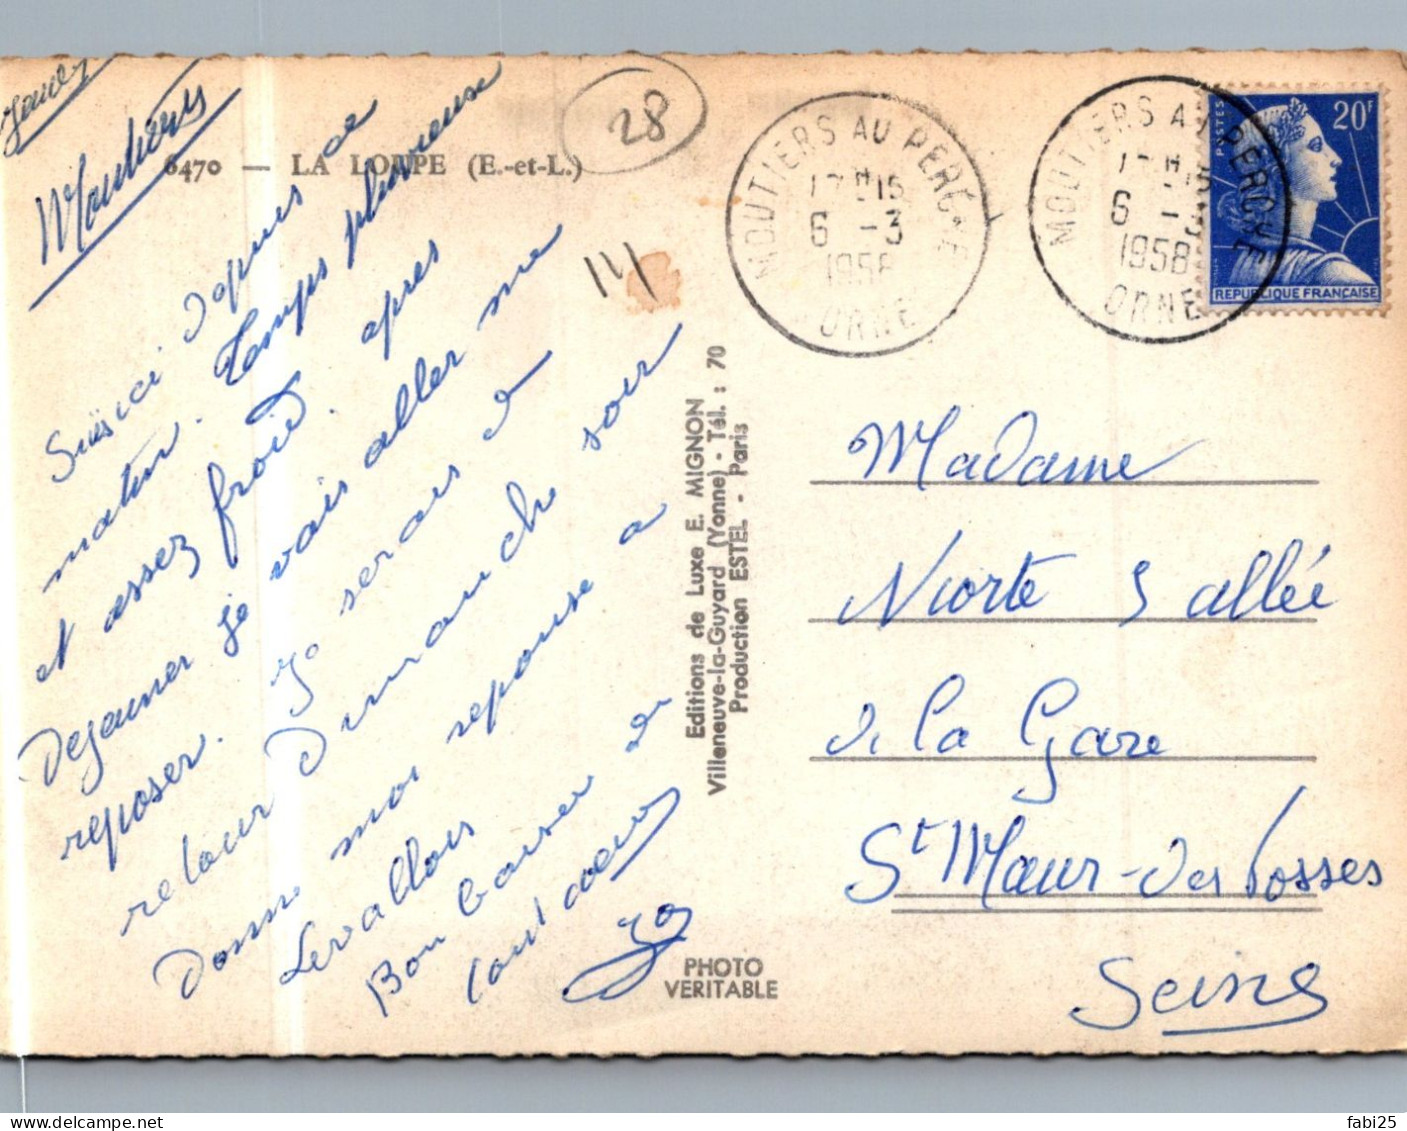 Jeudi
Moutiers
6470 — LA LOUPE (E.-et-L.)
28
Suis ici depuis ce
matin. Temps pluvieuse
et assez froid. apres
Dejeuner je vais aller me
reposer. Je serais de
retour Dimanche soir
Donne moi reponse a
Levallois
Bon baiser de
tout coeur
Editions de Luxe E. MIGNON
Villeneuve-la-Guyard (Yonne) - Tél. : 70
Production ESTEL - Paris
PHOTO
VERITABLE
MOUTIERS AU PERCHE
6 -3
1958
ORNE
MOUTIERS AU PERCHE
6 -3
1958
ORNE
POSTES
20F
REPUBLIQUE FRANÇAISE
Madame
Niorte 5 allée
de la Gare
St Maur-des Fosses
Seine
fabi25